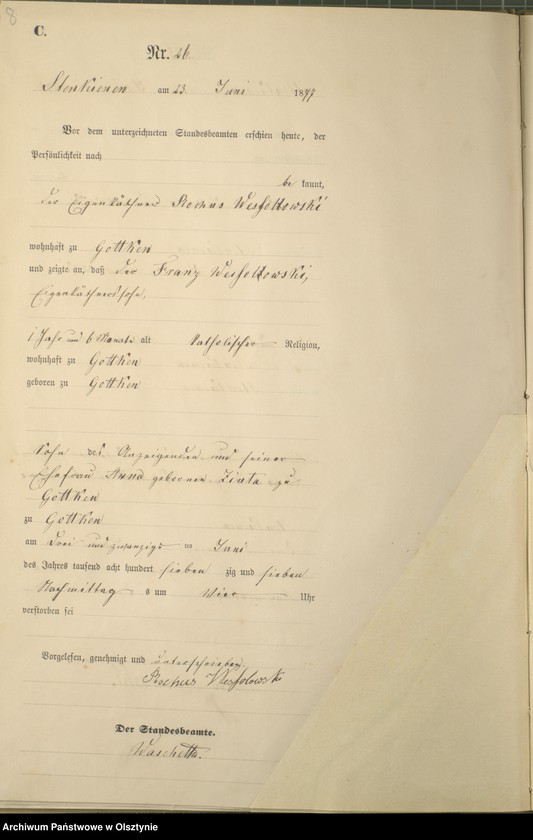 8
C.
Nr. 26
Stenkienen am 23. Juni 1877
Vor dem unterzeichneten Standesbeamten erschien heute, der
Persönlichkeit nach
be kannt,
der Eigenkäthner Rochus Wesfolkowski
wohnhaft zu Gottken
und zeigte an, daß der Franz Wesfolkowski,
Eigenkäthnersohn,
1 Jahr und 6 Monate alt katholischer Religion,
wohnhaft zu Gottken
geboren zu Gottken
Sohn des Anzeigenden und seiner
Ehefrau Anna geborenen Zinta zu
Gottken
zu Gottken
am drei und zwanzigsten Juni
des Jahres tausend acht hundert sieben zig und sieben
Nachmittags um Vier Uhr
verstorben sei
Vorgelesen, genehmigt und unterschrieben
Rochus
Der Standesbeamte.
Archiwum Państwowe w Olsztynie